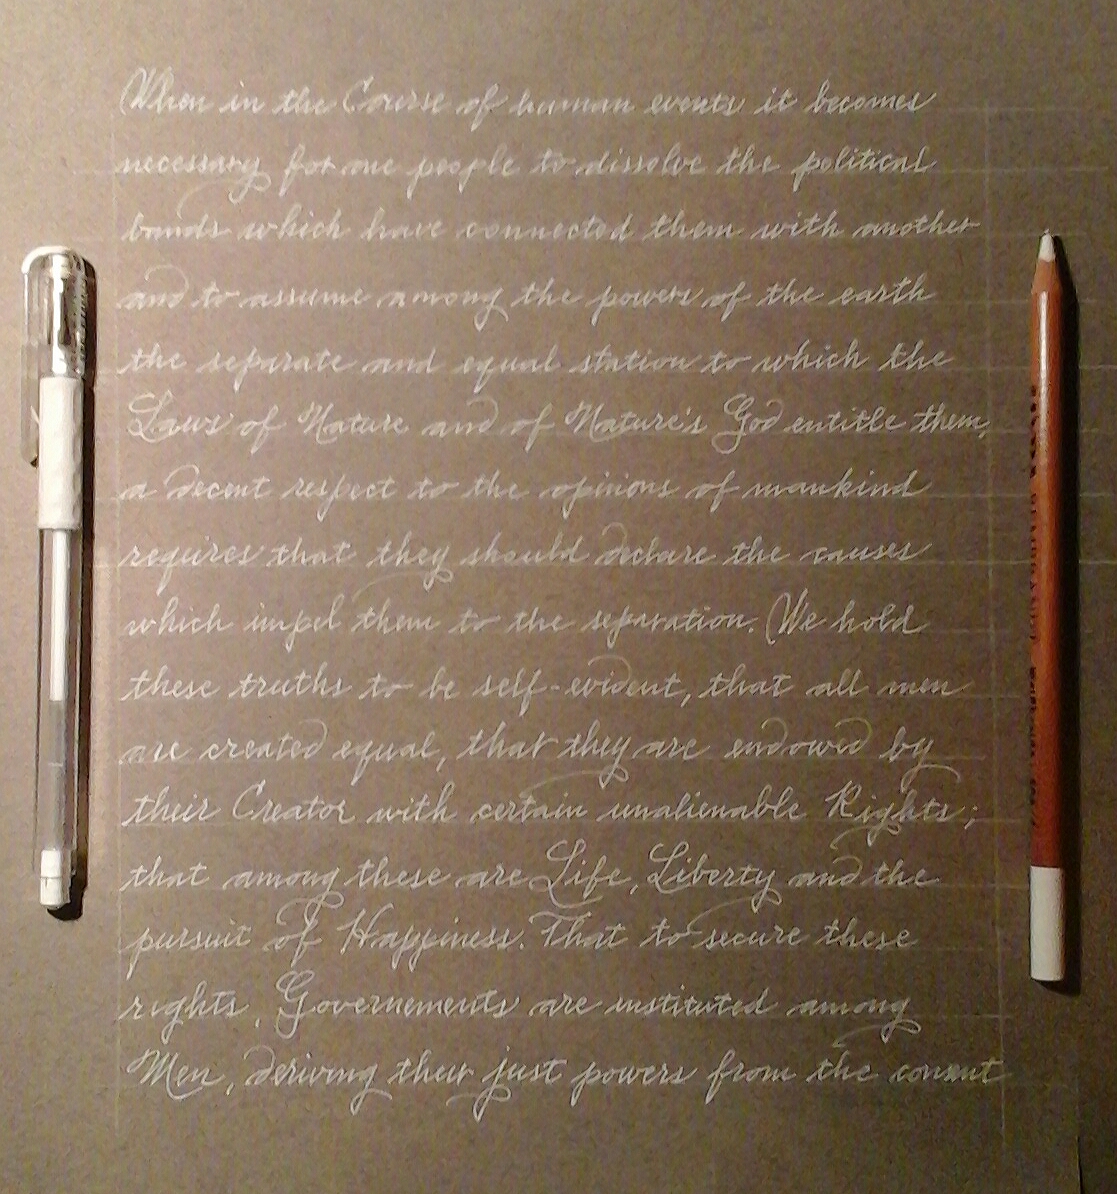 When in the Course of human events it becomes
necessary for one people to dissolve the political
bands which have connected them with another
and to assume among the powers of the earth
the separate and equal station to which the
Laws of Nature and of Nature's God entitle them,
a decent respect to the opinions of mankind
requires that they should declare the causes
which impel them to the separation. We hold
these truths to be self-evident, that all men
are created equal, that they are endowed by
their Creator with certain unalienable Rights;
that among these are Life, Liberty and the
pursuit of Happiness. That to secure these
rights, Governements are instituted among
Men, deriving their just powers from the consent